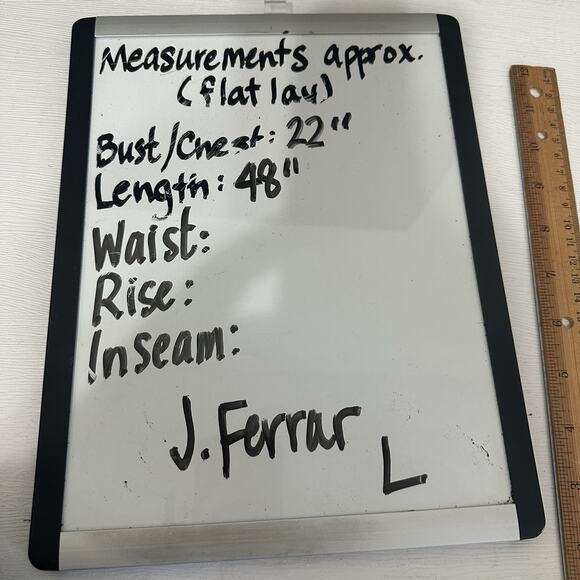 Measurements approx.
(flat lay)
Bust/Chest: 22"
Length: 48"
Waist:
Rise:
Inseam:
J. Ferrar
L
12
11
10
9
8
7
6
5
4
3